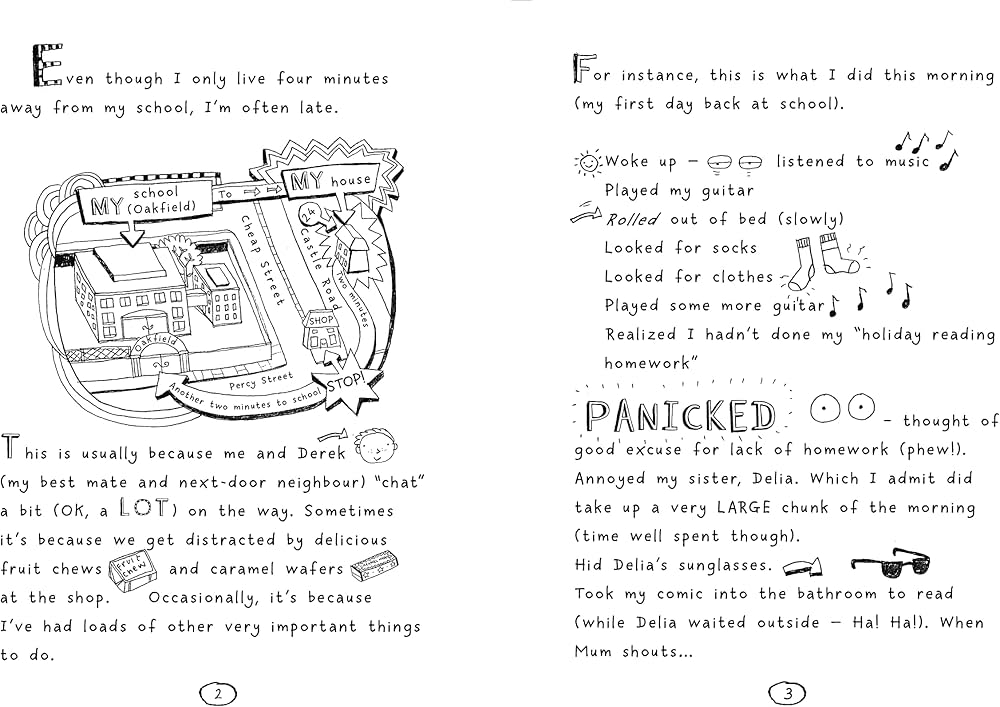 Even though I only live four minutes
away from my school, I'm often late.
MY school
(Oakfield)
To
MY house
24
Cheap Street
Castle Road
Two minutes
SHOP
Oakfield
Percy Street
STOP!
Another two minutes to school
This is usually because me and Derek
(my best mate and next-door neighbour) "chat"
a bit (OK, a LOT) on the way. Sometimes
it's because we get distracted by delicious
fruit chews FRUIT CHEW and caramel wafers
at the shop. Occasionally, it's because
I've had loads of other very important things
to do.
2
For instance, this is what I did this morning
(my first day back at school).
Woke up – listened to music
Played my guitar
Rolled out of bed (slowly)
Looked for socks
Looked for clothes
Played some more guitar
Realized I hadn't done my "holiday reading
homework"
PANICKED – thought of
good excuse for lack of homework (phew!).
Annoyed my sister, Delia. Which I admit did
take up a very LARGE chunk of the morning
(time well spent though).
Hid Delia's sunglasses.
Took my comic into the bathroom to read
(while Delia waited outside – Ha! Ha!). When
Mum shouts...
3